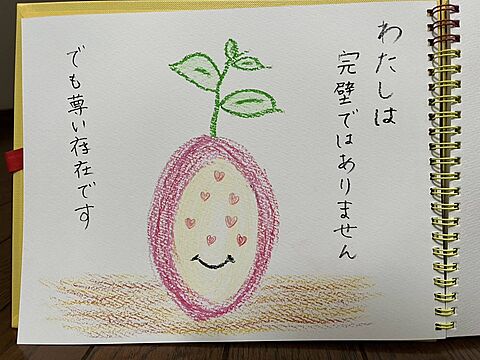 わたしは
完壁ではありません
でも尊い存在です